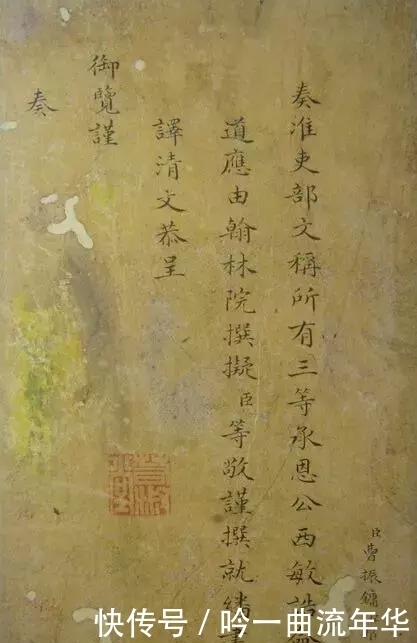 臣曹振鏞
奏淮吏部文稱所有三等承恩公西敏誥
道應由翰林院撰擬臣等敬謹撰就繕
譯清文恭呈
御覽謹
奏
快传号 / 吟一曲流年华